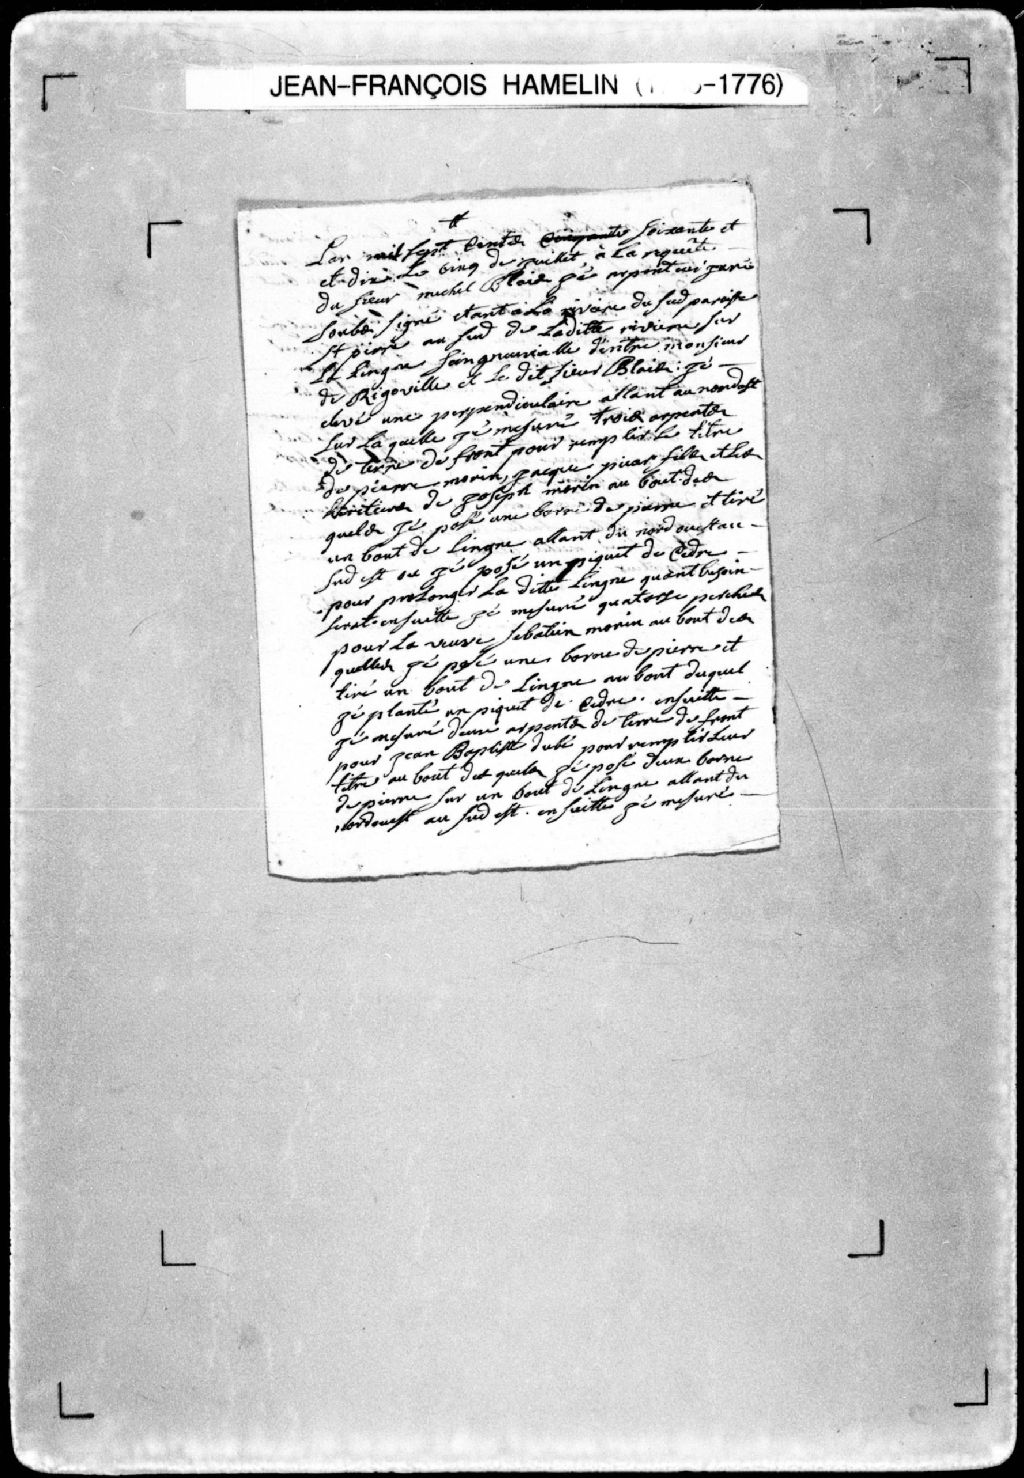 JEAN-FRANÇOIS HAMELIN ( -1776)
Lan mil sept Cents Cinquante soixante et
et dix Le Cinq de juillet, à La requête
du sieur michel Blais gé arpenteur juré
soubs signé etant a La riviere du sud paroisse
St pierre au sud de Laditte riviere sur
La Lingne seingneurialle d'entre monsieur
de Rigoville et Le dit sieur Blais: gé
elevé une perpendiculaire allant au nordest
sur La quelle gé mesuré trois arpents
de terre de front pour remplir Le titre
de pierre morin, jacque picar fils et Les
heritiers de joseph morin au bout des
quels gé posé une borne de pierre et tiré
un bout de Lingne allant du nord ouest au
sud est ou gé posé un piquet de Cedre
pour proLonger La ditte Lingne quant besoin
serat ensuitte gé mesuré quatorse perches
pour La veuve sebatien morin au bout des
quelles gé posé une borne de pierre et
tiré un bout de Lingne au bout duquel
gé planté un piquet de Cedre. ensuitte
gé mesuré deux arpents de terre de front
pour jean Baptiste dubé pour remplir Leur
titre au bout des quels gé posé deux borne
de pierre sur un bout de Lingne allant du
nordouest au sud est. ensuitte gé mesuré